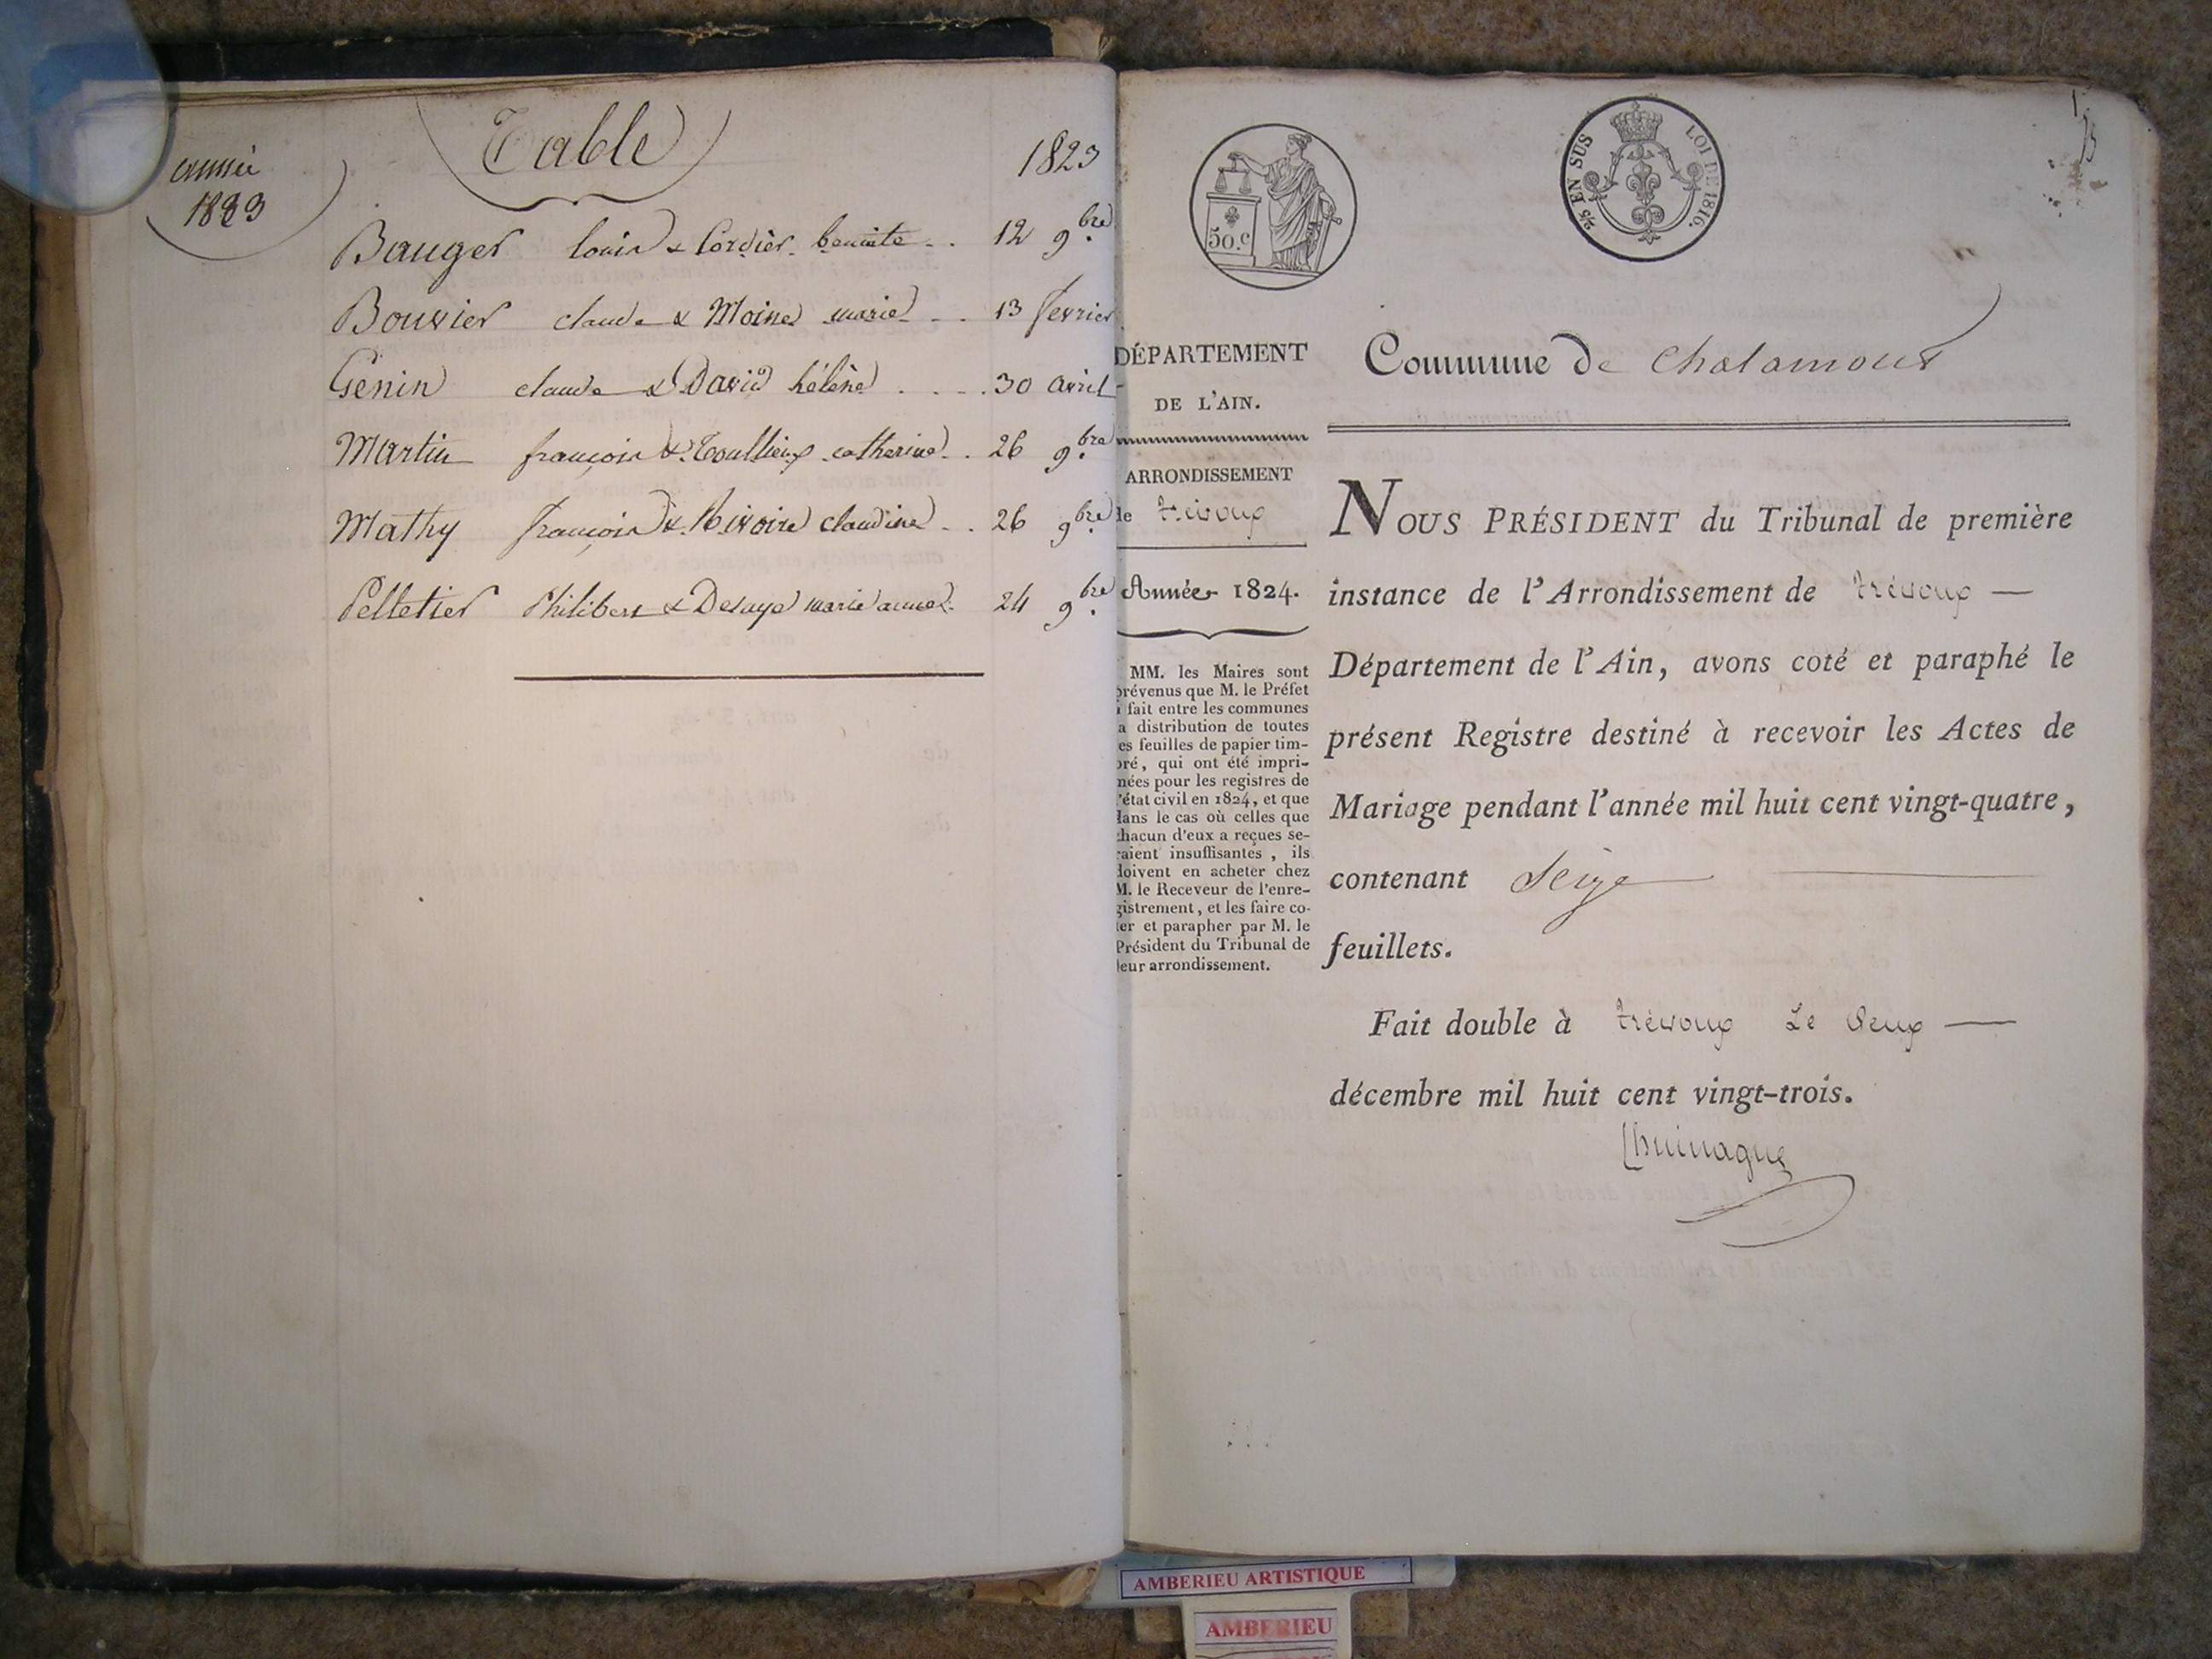 année
1823
Table
1823
Bauger louis & Cordier benoite . . 12 9bre
Bouvier claude & Moine marie . . 13 fevrier
Genin claude & David hélène . . . . 30 avril
Martin françois & catherine . . 26 9bre
Mathy françois & Rivoire claudine . . 26 9bre
Pelletier Philibert & Desaye marie anne . 24 9bre
50.c
2/5 EN SUS LOI DE 1816.
DÉPARTEMENT
DE L'AIN.
ARRONDISSEMENT
de trévoux
Année 1824.
MM. les Maires sont
prévenus que M. le Préfet
a fait entre les communes
la distribution de toutes
les feuilles de papier tim-
bré, qui ont été impri-
mées pour les registres de
l'état civil en 1824, et que
dans le cas où celles que
chacun d'eux a reçues se-
raient insuffisantes, ils
doivent en acheter chez
M. le Receveur de l'enre-
gistrement, et les faire co-
ter et parapher par M. le
Président du Tribunal de
leur arrondissement.
Commune de chalamont
NOUS PRÉSIDENT du Tribunal de première
instance de l'Arrondissement de trévoux —
Département de l'Ain, avons coté et paraphé le
présent Registre destiné à recevoir les Actes de
Mariage pendant l'année mil huit cent vingt-quatre,
contenant Seize
feuillets.
Fait double à trévoux Le Deux —
décembre mil huit cent vingt-trois.
AMBERIEU ARTISTIQUE
AMBERIEU